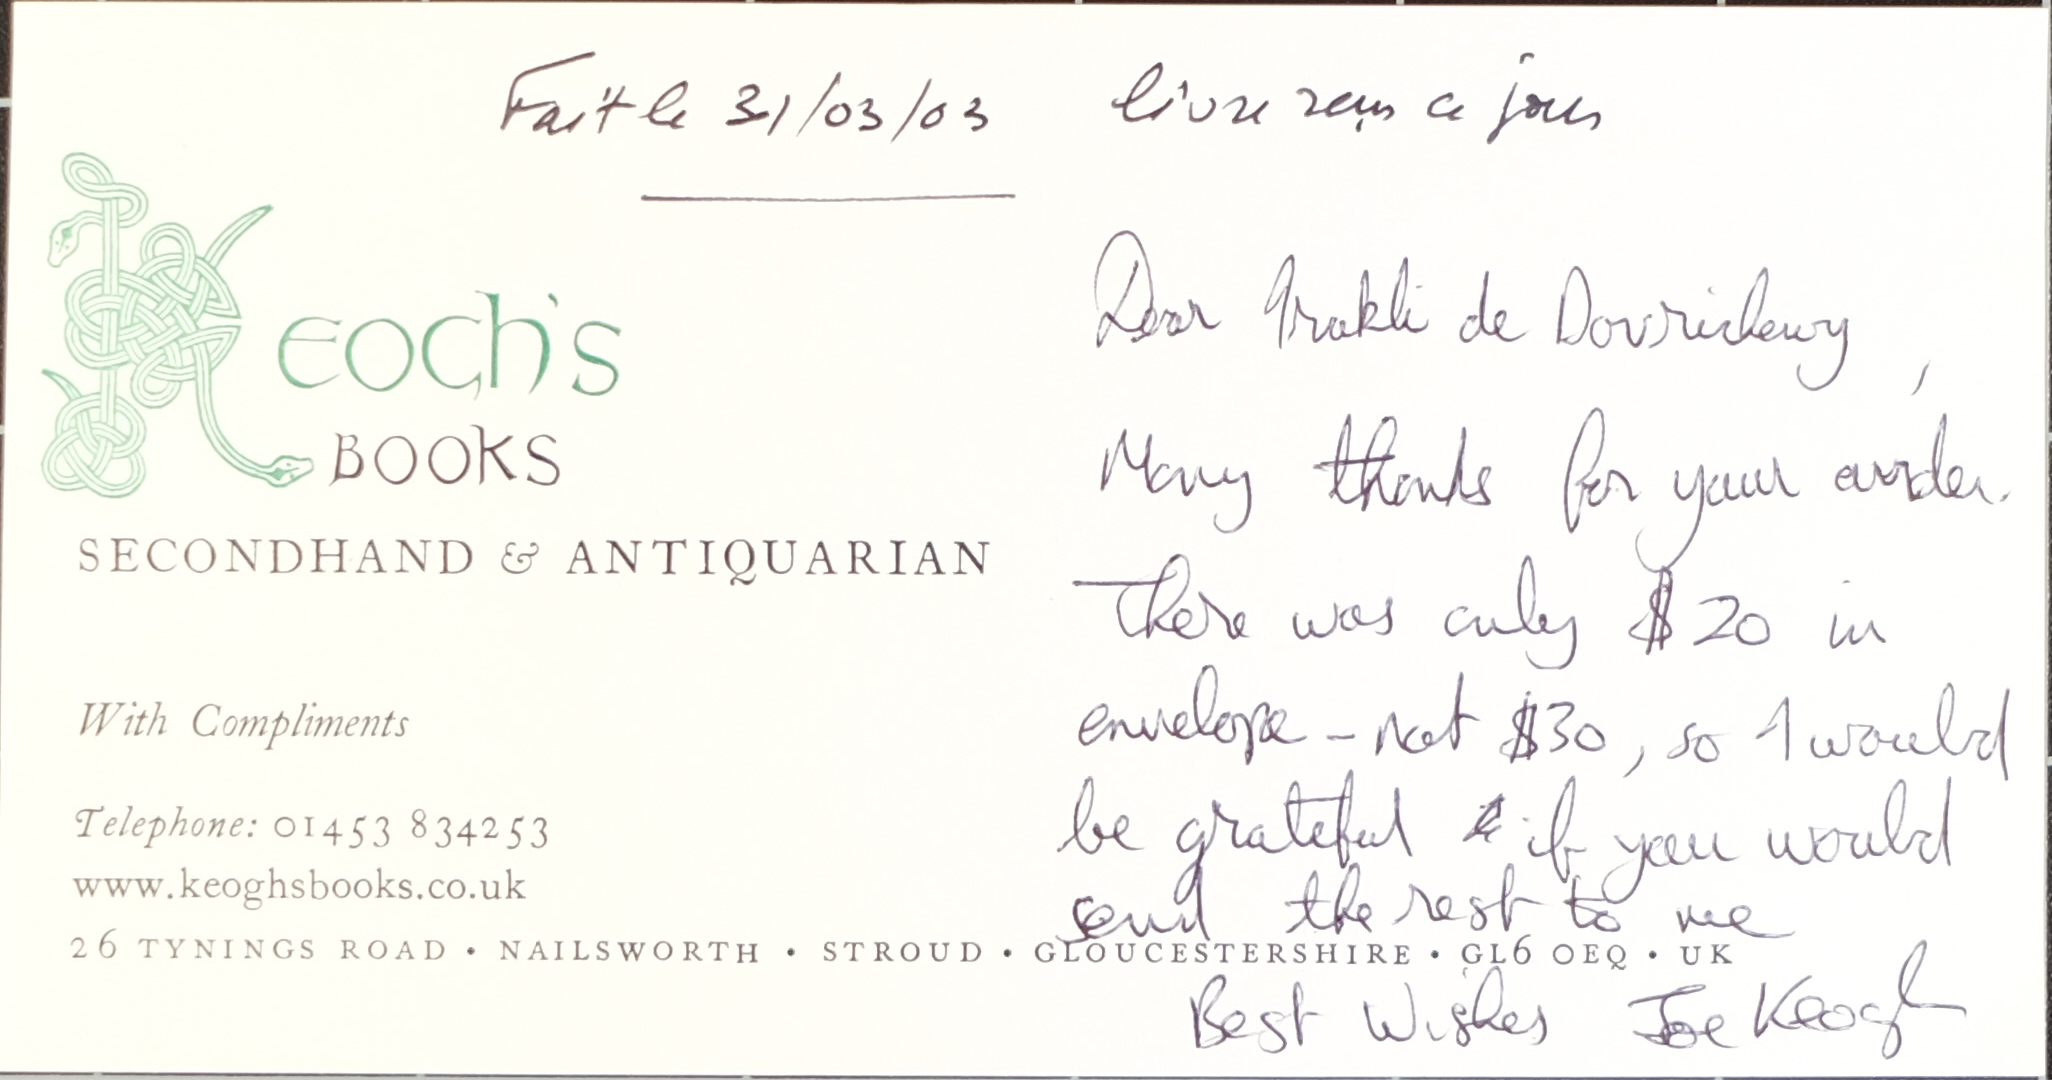 Fait le 31/03/03 livre reçu ce jour
Keogh's
BOOKS
SECONDHAND & ANTIQUARIAN
With Compliments
Telephone: 01453 834253
www.keoghsbooks.co.uk
26 TYNINGS ROAD • NAILSWORTH • STROUD • GLOUCESTERSHIRE • GL6 0EQ • UK
Dear Irakli de Davrichewy,
Many thanks for your order.
There was only $20 in
envelope – not $30, so I would
be grateful if you would
send the rest to me
Best Wishes Joe Keogh